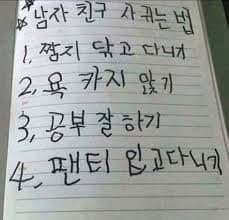 ☆남자 친구 사귀는 법
☆
1. 짬지 닦고 다니기
2. 욕 카지 않기
3. 공부 잘 하기
4. 팬티 입고다니기